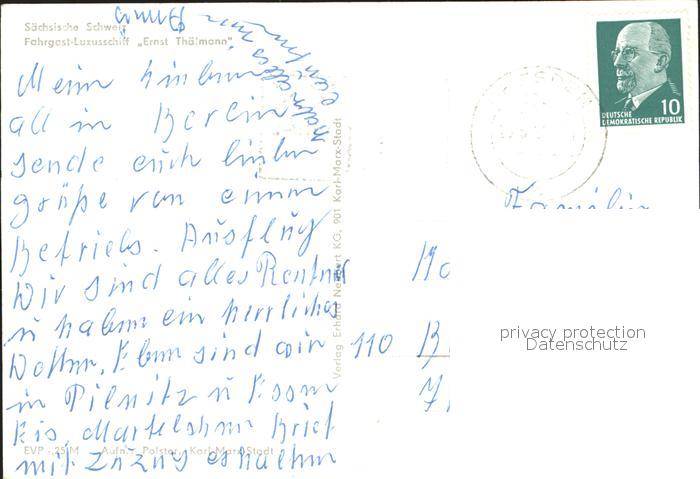 Sächsische Schweiz
Fahrgast-Luxusschiff „Ernst Thälmann"
Meine
all in Berlin
sende euch
grüße von einem
Betriebs. Ausflug
Wir sind alles Rentner
u haben ein herrliches
Wetter. Eben sind wir
in Pilnitz u Essen
Eis, Brief
mit erhalten
EVP -,25 M Aufn.: Polster, Karl-Marx-Stadt
Verlag Erhard Neubert KG, 901 Karl-Marx-Stadt
10
DEUTSCHE
DEMOKRATISCHE REPUBLIK
Familie
110 B
privacy protection
Datenschutz